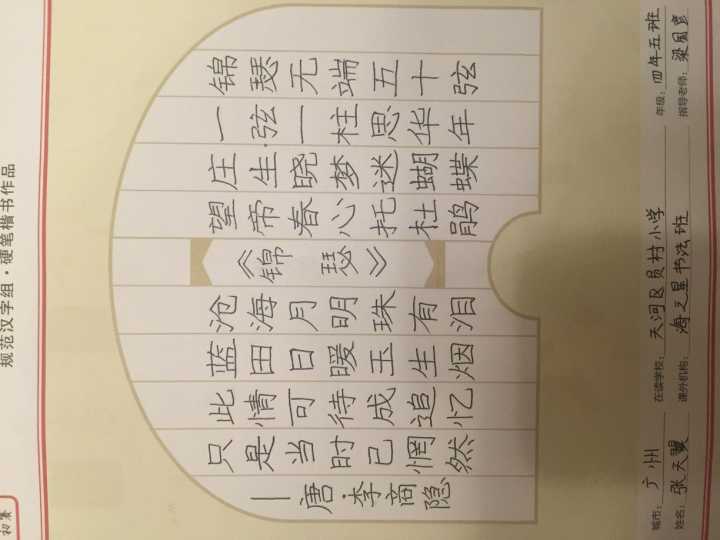 初赛
规范汉字组·硬笔楷书作品
锦瑟无端五十弦
一弦一柱思华年
庄生晓梦迷蝴蝶
望帝春心托杜鹃
《锦瑟》
沧海月明珠有泪
蓝田日暖玉生烟
此情可待成追忆
只是当时已惘然
—唐·李商隐
城市：广州 在读学校：天河区员村小学 年级：四年五班
姓名：张天翼 课外机构：海之星书法班 指导老师：梁